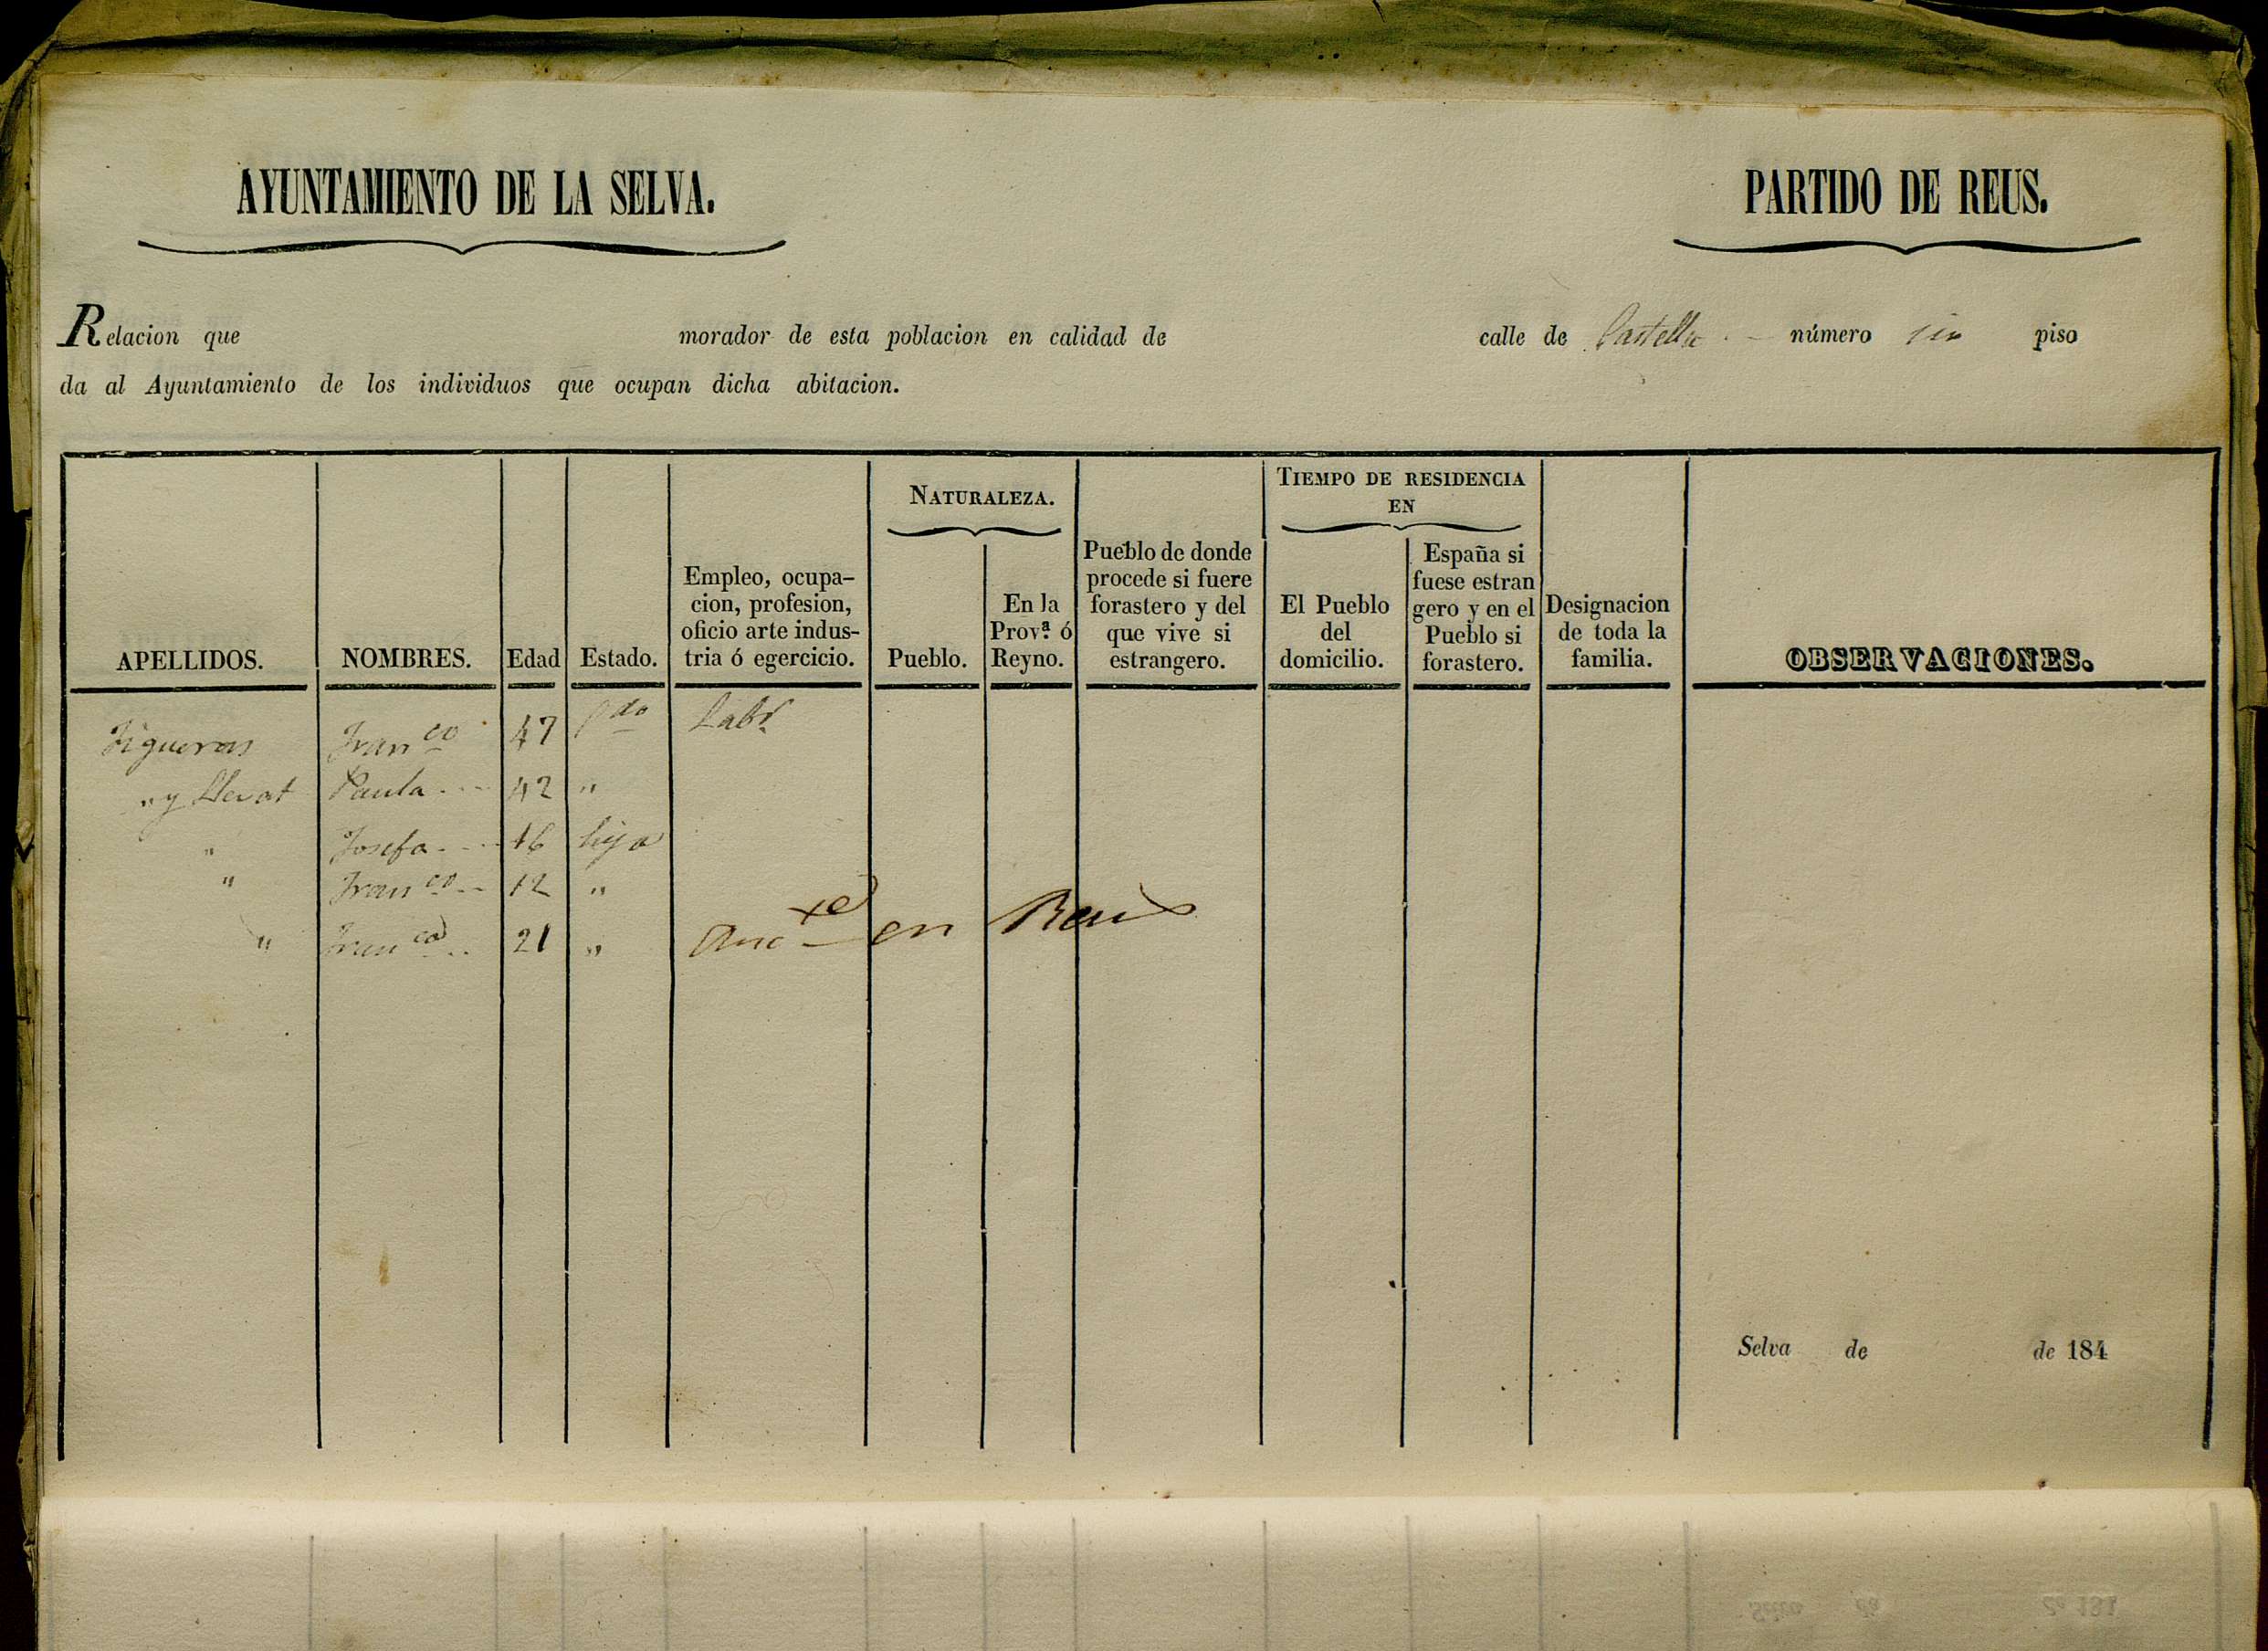 AYUNTAMIENTO DE LA SELVA.
PARTIDO DE REUS.
Relacion que morador de esta poblacion en calidad de calle de número sin piso
da al Ayuntamiento de los individuos que ocupan dicha abitacion.
APELLIDOS.
NOMBRES.
Edad
Estado.
Empleo, ocupa-
cion, profesion,
oficio arte indus-
tria ó egercicio.
NATURALEZA.
Pueblo.
En la
Prov.ª ó
Reyno.
Pueblo de donde
procede si fuere
forastero y del
que vive si
estrangero.
TIEMPO DE RESIDENCIA
EN
El Pueblo
del
domicilio.
España si
fuese estran
gero y en el
Pueblo si
forastero.
Designacion
de toda la
familia.
OBSERVACIONES.
Figueras Fran.co 47 Labr.
" y Llevat Paula 42 "
" Josefa 16 hija
" Fran.co 12 "
" Fran.ca 21 " en Reus
Selva de de 184